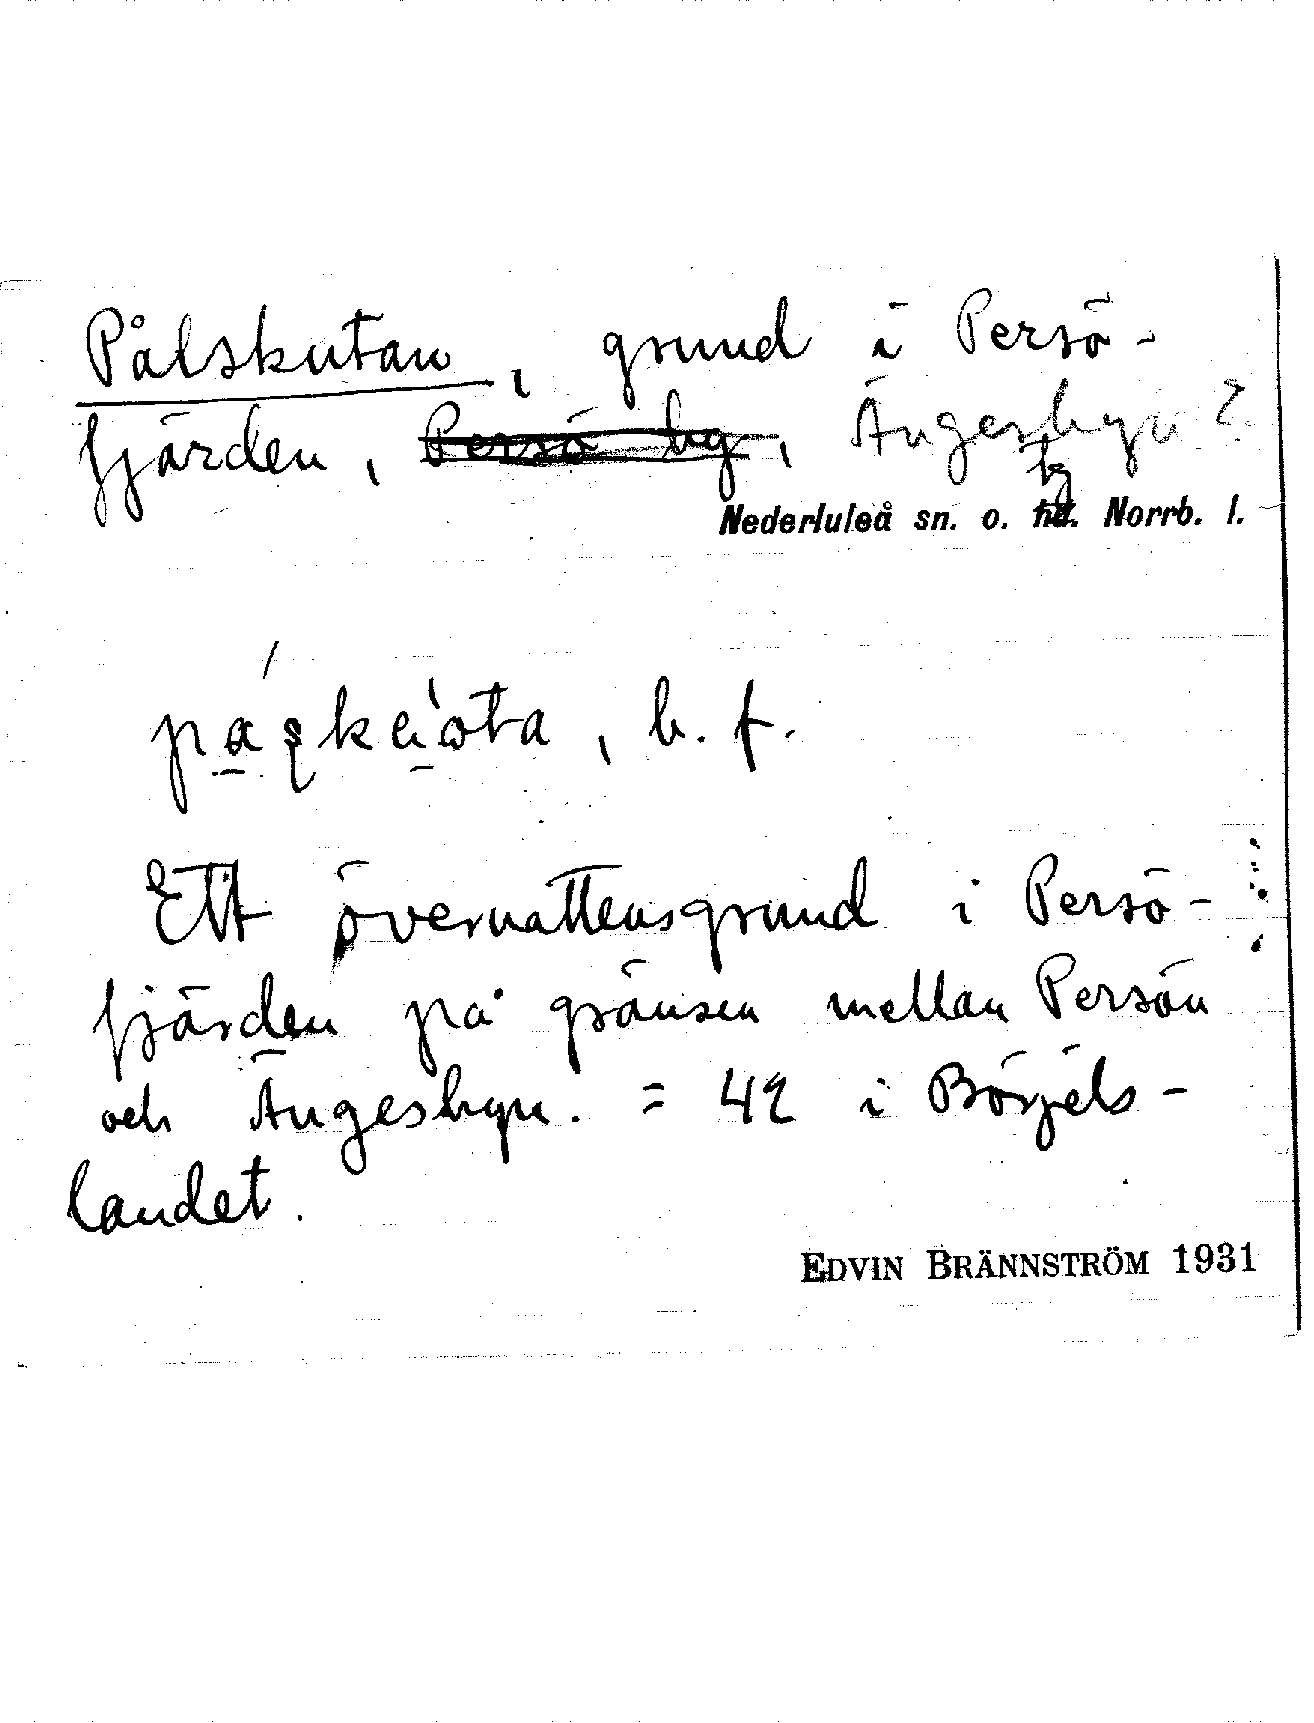 Pålskutan, grund i Persö-
fjärden, Persö by, Ängesbyn?
Nederluleå sn. o. tg. Norrb. l.
b. f.
Ett övervattensgrund i Persö-
fjärden på gränsen mellan Persön
och Ängesbyn. = 42 i Börjels-
landet.
EDVIN BRÄNNSTRÖM 1931